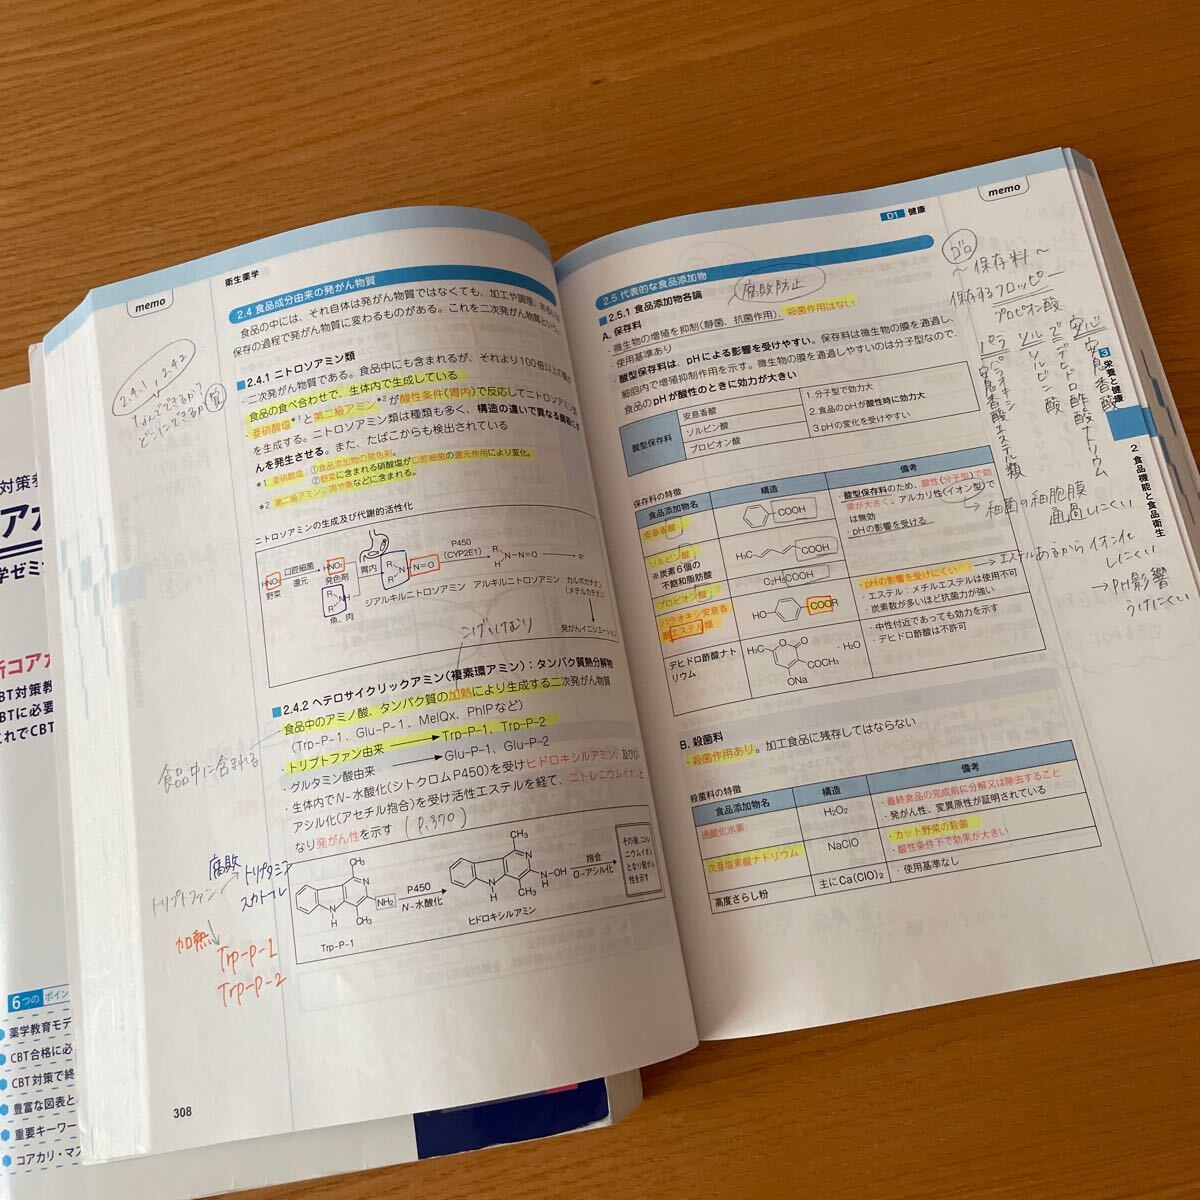 memo
衛生薬学
2.4 食品成分由来の発がん物質
食品の中には、それ自体は発がん物質ではなくても、加工や調理、あるいは
保存の過程で発がん物質に変わるものがある。これを二次発がん物質という。
■2.4.1 ニトロソアミン類
・二次発がん物質である。食品中にも含まれるが、それより100倍以上の量が
食品の食べ合わせで、生体内で生成している。
・亜硝酸塩*1と第二級アミン*2が酸性条件(胃内)で反応してニトロソアミン類
を生成する。ニトロソアミン類は種類も多く、構造の違いで異なる臓器にが
んを発生させる。また、たばこからも検出されている
*1 亜硝酸塩：①食品添加物の発色剤。
②野菜に含まれる硝酸塩が口腔細菌の還元作用により変化。
*2 第二級アミン：肉や魚などに含まれる。
ニトロソアミンの生成及び代謝的活性化
HNO3
野菜
口腔細菌
還元
HNO2
発色剤
魚、肉
胃内
N－N＝O
ジアルキルニトロソアミン
P450
(CYP2E1)
アルキルニトロソアミン
カルボカチオン
(メチルカチオン)
発がんイニシエーション
こげ、けむり
■2.4.2 ヘテロサイクリックアミン(複素環アミン)：タンパク質熱分解物
・食品中のアミノ酸、タンパク質の加熱により生成する二次発がん物質
(Trp-P-1、Glu-P-1、MeIQx、PhIPなど)
・トリプトファン由来 → Trp-P-1、Trp-P-2
・グルタミン酸由来 → Glu-P-1、Glu-P-2
・生体内でN-水酸化(シトクロムP450)を受けヒドロキシルアミン、及びO-
アシル化(アセチル抱合)を受け活性エステルを経て、ニトレニウムイオンと
なり発がん性を示す (P.370)
Trp-P-1
P450
N-水酸化
ヒドロキシルアミン
抱合
O-アシル化
その後、ニトレ
ニウムイオン
となり発がん
性を示す
2.4.1, 2.4.2
なんでできるか?
どこにできるか
食品中に含まれる
腐敗
トリプトファン
トリプタミン
スカトール
加熱
Trp-P-1
Trp-P-2
308
memo
D1 健康
2.5 代表的な食品添加物
■2.5.1 食品添加物各論
腐敗防止
A. 保存料
・微生物の増殖を抑制(静菌、抗菌作用)、殺菌作用はない
・使用基準あり
・酸型保存料は、pHによる影響を受けやすい。保存料は微生物の膜を通過し、
細胞内で増殖抑制作用を示す。微生物の膜を通過しやすいのは分子型なので、
食品のpHが酸性のときに効力が大きい
酸型保存料
安息香酸
ソルビン酸
プロピオン酸
1.分子型で効力大
2.食品のpHが酸性時に効力大
3.pHの変化を受けやすい
保存料の特徴
食品添加物名 構造 備考
安息香酸
COOH
・酸型保存料のため、酸性(分子型)で効
果が大きく、アルカリ性(イオン型)で
は無効
・pHの影響を受ける
ソルビン酸
※炭素6個の
不飽和脂肪酸
H3C COOH
プロピオン酸
C2H5COOH
パラオキシ安息香
酸エステル類
HO COOR
・pHの影響を受けにくい
・エステル：メチルエステルは使用不可
・炭素数が多いほど抗菌力が強い
デヒドロ酢酸ナト
リウム
H3C O O COCH3 ONa ・H2O
・中性付近であっても効力を示す
・デヒドロ酢酸は不許可
B. 殺菌料
・殺菌作用あり。加工食品に残存してはならない
殺菌料の特徴
食品添加物名 構造 備考
過酸化水素 H2O2
・最終食品の完成前に分解又は除去すること
・発がん性、変異原性が証明されている
次亜塩素酸ナトリウム NaClO
・カット野菜の殺菌
・酸性条件下で効果が大きい
高度さらし粉 主にCa(ClO)2 ・使用基準なし
ゴロ
～保存料～
保存するフロッピー
プロピオン酸
安息香酸
デヒドロ酢酸ナトリウム
ソルビン酸
パラオキシ安息香酸エステル類
細菌の細胞膜
通過しにくい
エステルあるからイオン化
しにくい
→PH影響
うけにくい
3 栄養と健康
2 食品機能と食品衛生
6つのポイン
薬学教育モデ
CBT合格に必
CBT対策で終
豊富な図表と
重要キーワー
コアカリ・マス
対策
学ゼミ
新コアカ
BT対策教
BTに必要
これでCBT